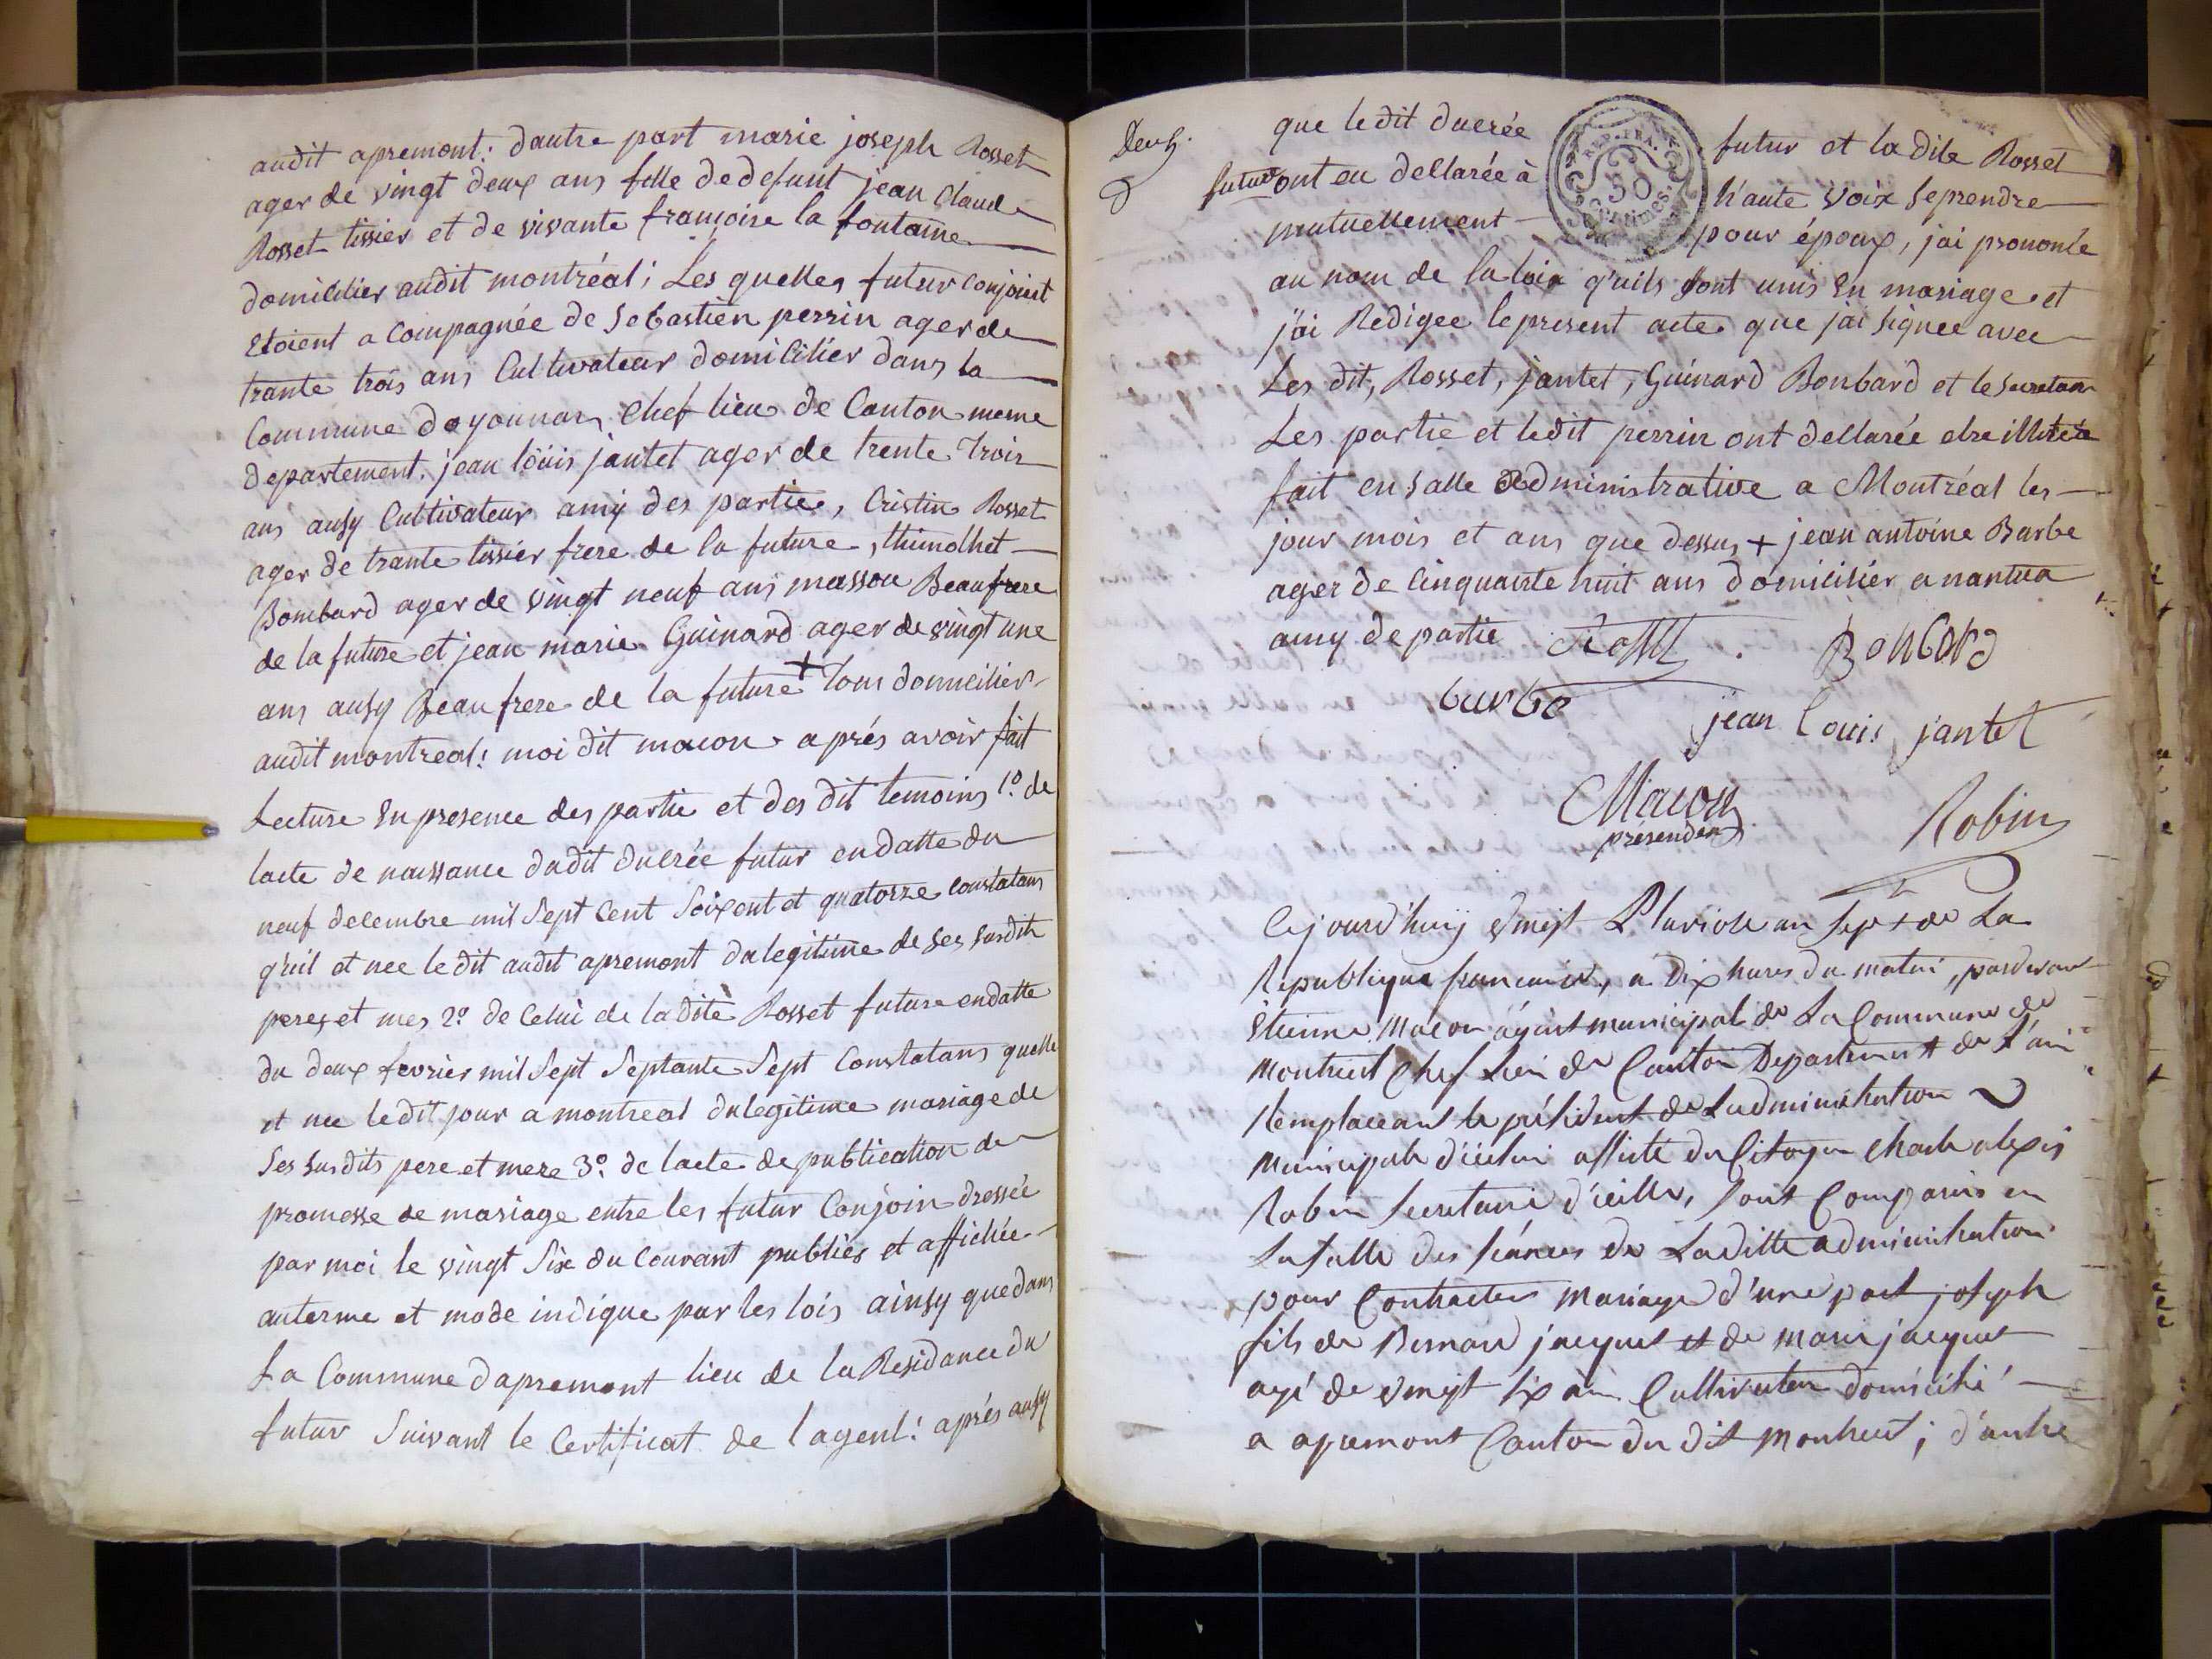 audit apremont: dautre part marie joseph Rosset
ager de vingt deux ans fille de defunt jean Claude
Rosset tissier et de vivante francoise la fontaine
domicilier audit montréal; Les quelles futur Conjoint
Etoient a Compagnée de Sebastien perrin ager de
trante trois ans Cultivateur domicilier dans la
Commune doyonnax Chef lieu de Canton meme
departement. jean louis jantet ager de trente trois
ans ausy Cultivateur amy des partie, Cristin Rosset
ager de trante tissier frere de la future, thimolhet
Bombard ager de vingt neuf ans masson Beaufrere
de la future et jean marie Guinard ager de vingt une
ans ausy Beaufrere de la future + tous domicilier
audit montreal: moi dit macon aprés avoir fait
Lecture En presence des partie et des dit temoins 1º. de
lacte de naissance dudit ducrée futur en datte du
neuf decembre mil Sept Cent Soixent et quatorze constatans
q'uil et nee le dit audit apremont du legitime de ses susdit
peres et mes 2º. de Celui de la dite Rosset future en datte
du deux fevrier mil Sept Septante Sept Constatans quelle
et nee le dit jour a montreal du legitime mariage de
Ses Susdits pere et mere 3º. de lacte de publication de
promesse de mariage entre les futur Conjoin dressée
par moi le vingt Six du Courant publiés et affichée
au terme et mode indique par les lois ainsy que dans
La Commune dapremont lieu de la Residance du
futur Suivant le Certificat de lagent: aprés ausy
Deux.
que le dit ducrée futur et la dite Rosset
future ont eu dellarée à h'aute voix Seprendre
mutuellement pour époux, jai prononcé
REP. FRA.
50
Centimes.
au nom de la loix q'uils Sont unis En mariage et
j'ai Redigee le present acte que jai Signee avec
Les dit, Rosset, jantet, Guinard Bonbard et le Secretaire
Les partie et ledit perrin ont dellarée etre illitérée
fait en Salle administrative a Montréal les
jour mois et ans que dessus + jean antoine Barbe
ager de Cinquante huit ans domicilier a nantua
amy de partie Rosset Bonbard
barbe
jean louis jantet
Macon
présendent
Robin
Cejourd'huij vingt Pluviose an sept de La
Republique francaise, a dix heures du matin, pardevant
Etienne Macon agent municipal de La Commune de
Montreal Chef Lieu de Canton Departement de L'ain
Remplaceant le président de Ladministration
Municipale d'icelui assisté du Citoyen Charle alexis
Robin Secretaire d'icelle, Sont Comparus en
La salle des séances de Laditte administration
pour Contracter Mariage d'une part joseph
fils de Bernard jacquet et de Marie jacquet
agé de vingt six ans Cultivateur domicilié
a apremont Canton du dit Montreal; d'autre